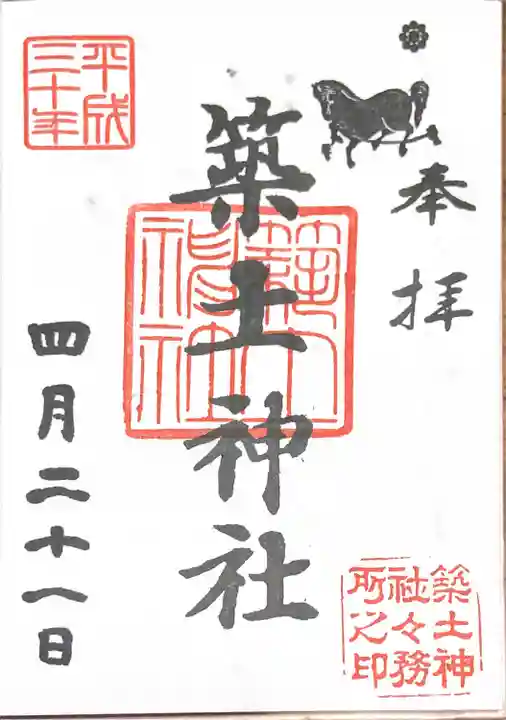 奉拝
築土神社
平成
三十年
四月二十八日
築土神
社々務
所之印